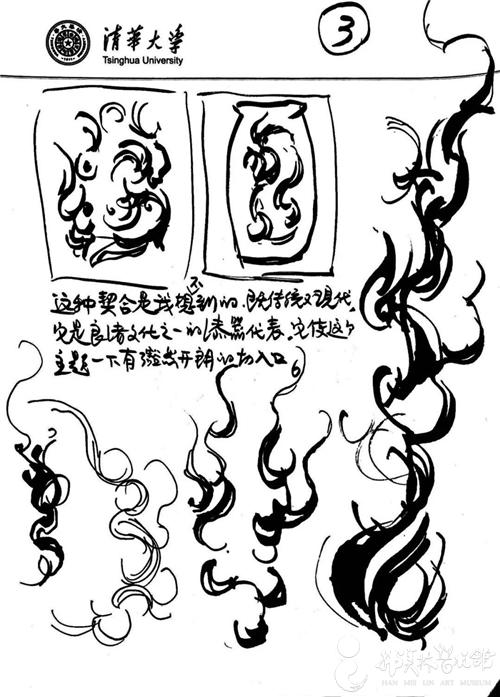 清华大学
Tsinghua University
3
这种契合是我想不到的、既传统又现代,
它是良渚文化之一的漆器代表,它使这个
主题一下有豁然开朗的切入口。
韩美林艺术馆
HAN MEI LIN ART MUSEUM